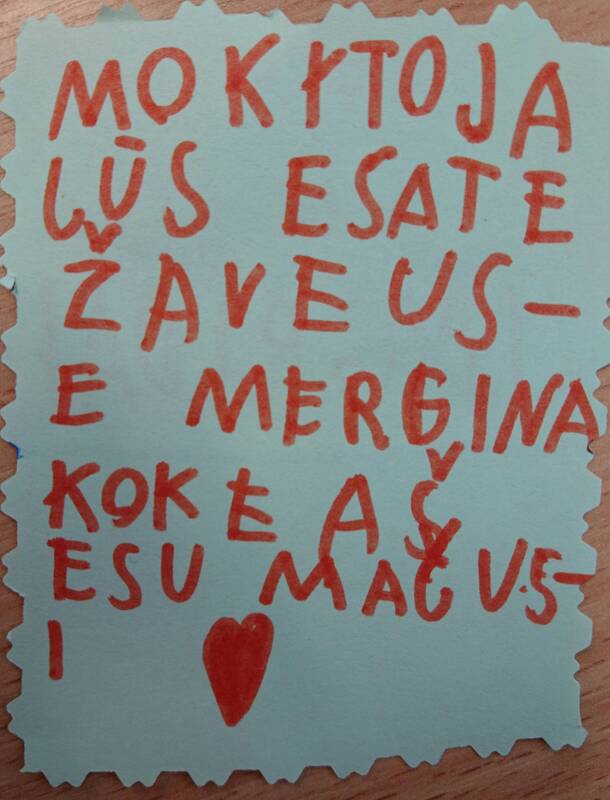 MOKITOJA
JŪS ESATE
ŽAVEUS-
E MERGINA
KOKE AŠ
ESU MAČUS-
I